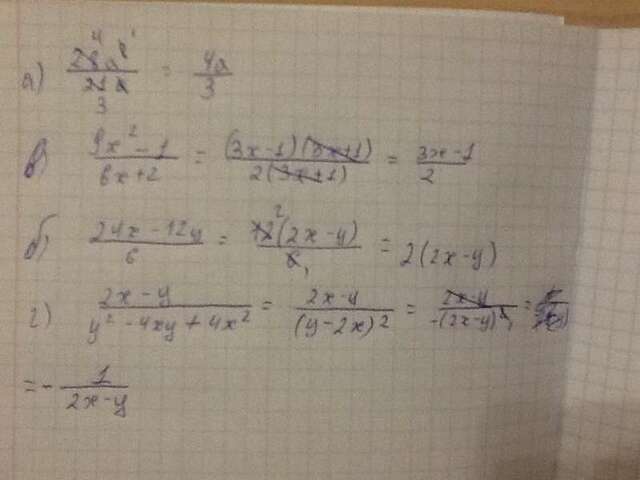 а) 28a² / 21a = 4a / 3
в) 9x² - 1 / 6x + 2 = (3x-1)(3x+1) / 2(3x+1) = 3x-1 / 2
б) 24x - 12y / 6 = 12(2x-y) / 6 = 2(2x-y)
г) 2x - y / y² - 4xy + 4x² = 2x-y / (y-2x)² = 2x-y / -(2x-y)² =
= - 1 / 2x-y